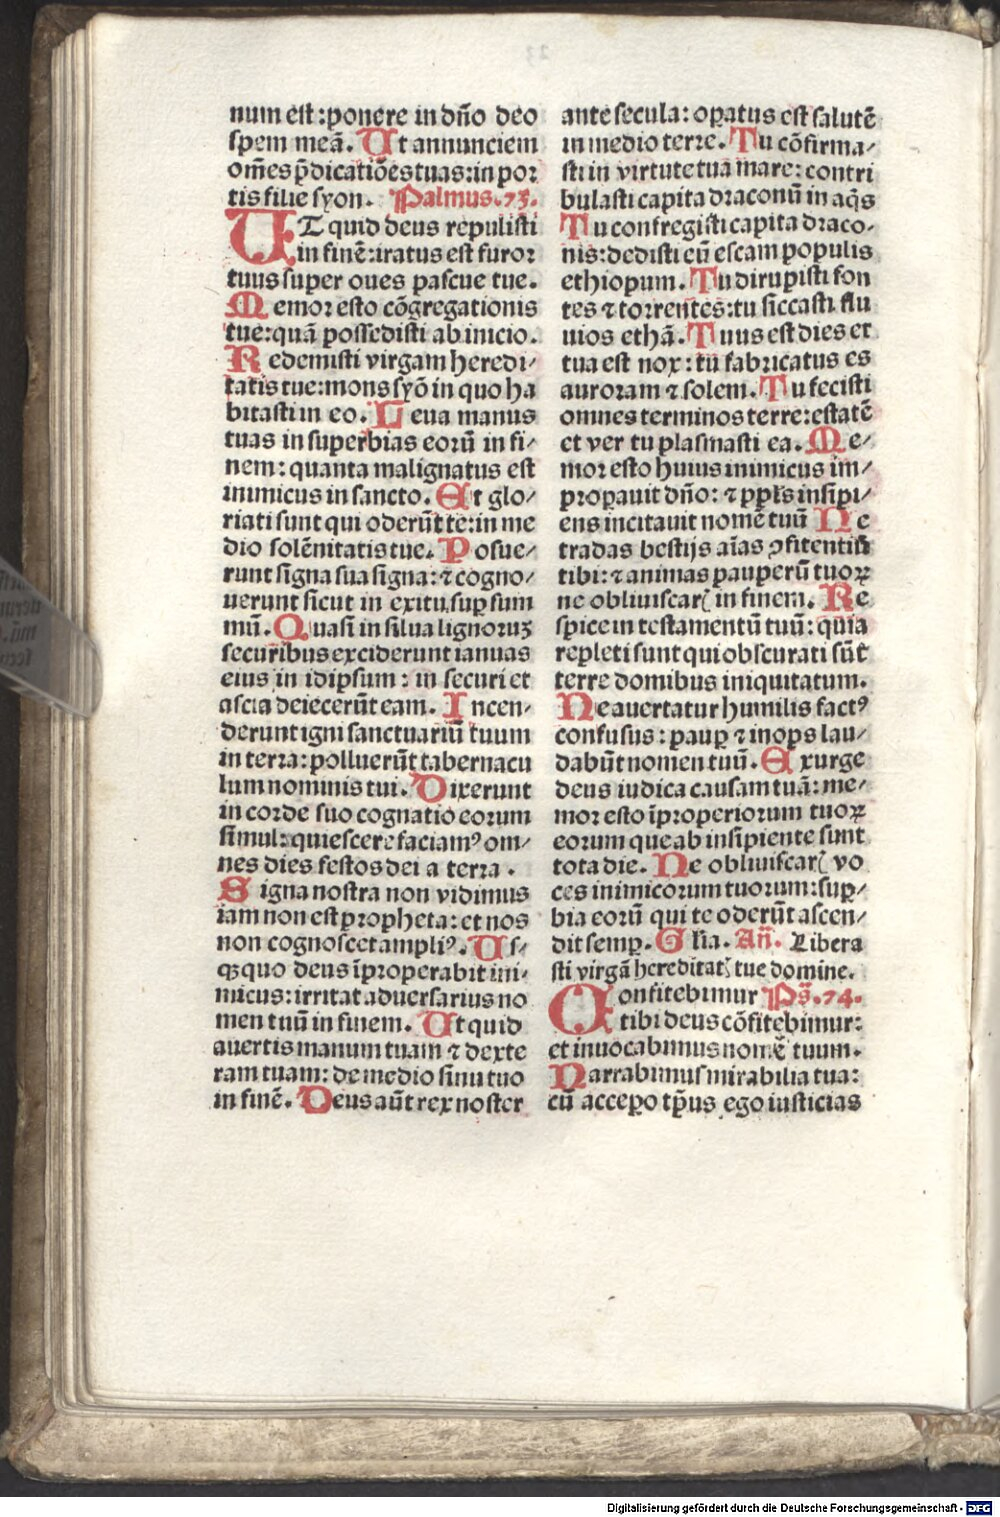 num est : ponere in dño deo
spem meã. Ut annunciem
om̃es p̃dicatiões tuas: in por
tis filie syon. Psalmus. 73.
UT quid deus repulisti
in finẽ: iratus est furor
tuus super oues pascue tue.
Memor esto cõgregationis
tue: quã possedisti ab inicio.
Redemisti virgam heredi⸗
tatis tue: mons syõ in quo ha
bitasti in eo. Leua manus
tuas in superbias eorũ in fi⸗
nem: quanta malignatus est
inimicus in sancto. Et glo⸗
riati sunt qui oderũt te: in me
dio solẽnitatis tue. Posue⸗
runt signa sua signa: ⁊ cogno⸗
uerunt sicut in exitu sup̱ sum
mũ. Quasi in silua lignoruꝫ
securibus exciderunt ianuas
eius in idipsum: in securi et
ascia deiecerũt eam. Incen⸗
derunt igni sanctuariũ tuum
in terra: polluerũt tabernacu
lum nominis tui. Dixerunt
in corde suo cognatio eorum
simul: quiescere faciamꝰ om⸗
nes dies festos dei a terra.
Signa nostra non vidimus
iam non est propheta: et nos
non cognoscet ampliꝰ. Us⸗
qꝫ quo deus ĩproperabit ini⸗
micus: irritat aduersarius no
men tuũ in finem. Ut quid
auertis manum tuam ⁊ dexte
ram tuam: de medio sinu tuo
in finẽ. Deus aũt rex noster
ante secula: op̱atus est salutẽ
in medio terre. Tu cõfirma⸗
sti in virtute tua mare: contri
bulasti capita draconũ in aq̃s
Tu confregisti capita draco⸗
nis: dedisti eũ escam populis
ethiopum. Tu dirupisti fon
tes ⁊ torrentes: tu siccasti flu
uios ethã. Tuus est dies et
tua est nox: tu fabricatus es
auroram ⁊ solem. Tu fecisti
omnes terminos terre: estatẽ
et ver tu plasmasti ea. Me⸗
mor esto huius inimicus im⸗
properauit dño: ⁊ pp̃ls insipi⸗
ens incitauit nomẽ tuũ Ne
tradas bestijs aĩas ꝯfitentiũ
tibi: ⁊ animas pauperũ tuoꝝ
ne obliuiscarꝭ in finem. Re
spice in testamentũ tuũ: quia
repleti sunt qui obscurati sũt
terre domibus iniquitatum.
Ne auertatur humilis factꝰ
confusus: paup̱ ⁊ inops lau⸗
dabũt nomen tuũ. Exurge
deus iudica causam tuã: me⸗
mor esto ĩproperiorum tuoꝝ
eorum que ab insipiente sunt
tota die. Ne obliuiscarꝭ vo
ces inimicorum tuorum: sup̱⸗
bia eorũ qui te oderũt ascen⸗
dit semp̱. Glia. Añ. Libera
sti virgã hereditatꝭ tue domine.
Confitebimur Ps̃. 74.
tibi deus cõfitebimur:
et inuocabimus nomẽ tuum.
Narrabimus mirabilia tua:
cũ accepo tp̃us ego iusticias
Digitalisierung gefördert durch die Deutsche Forschungsgemeinschaft - DFG